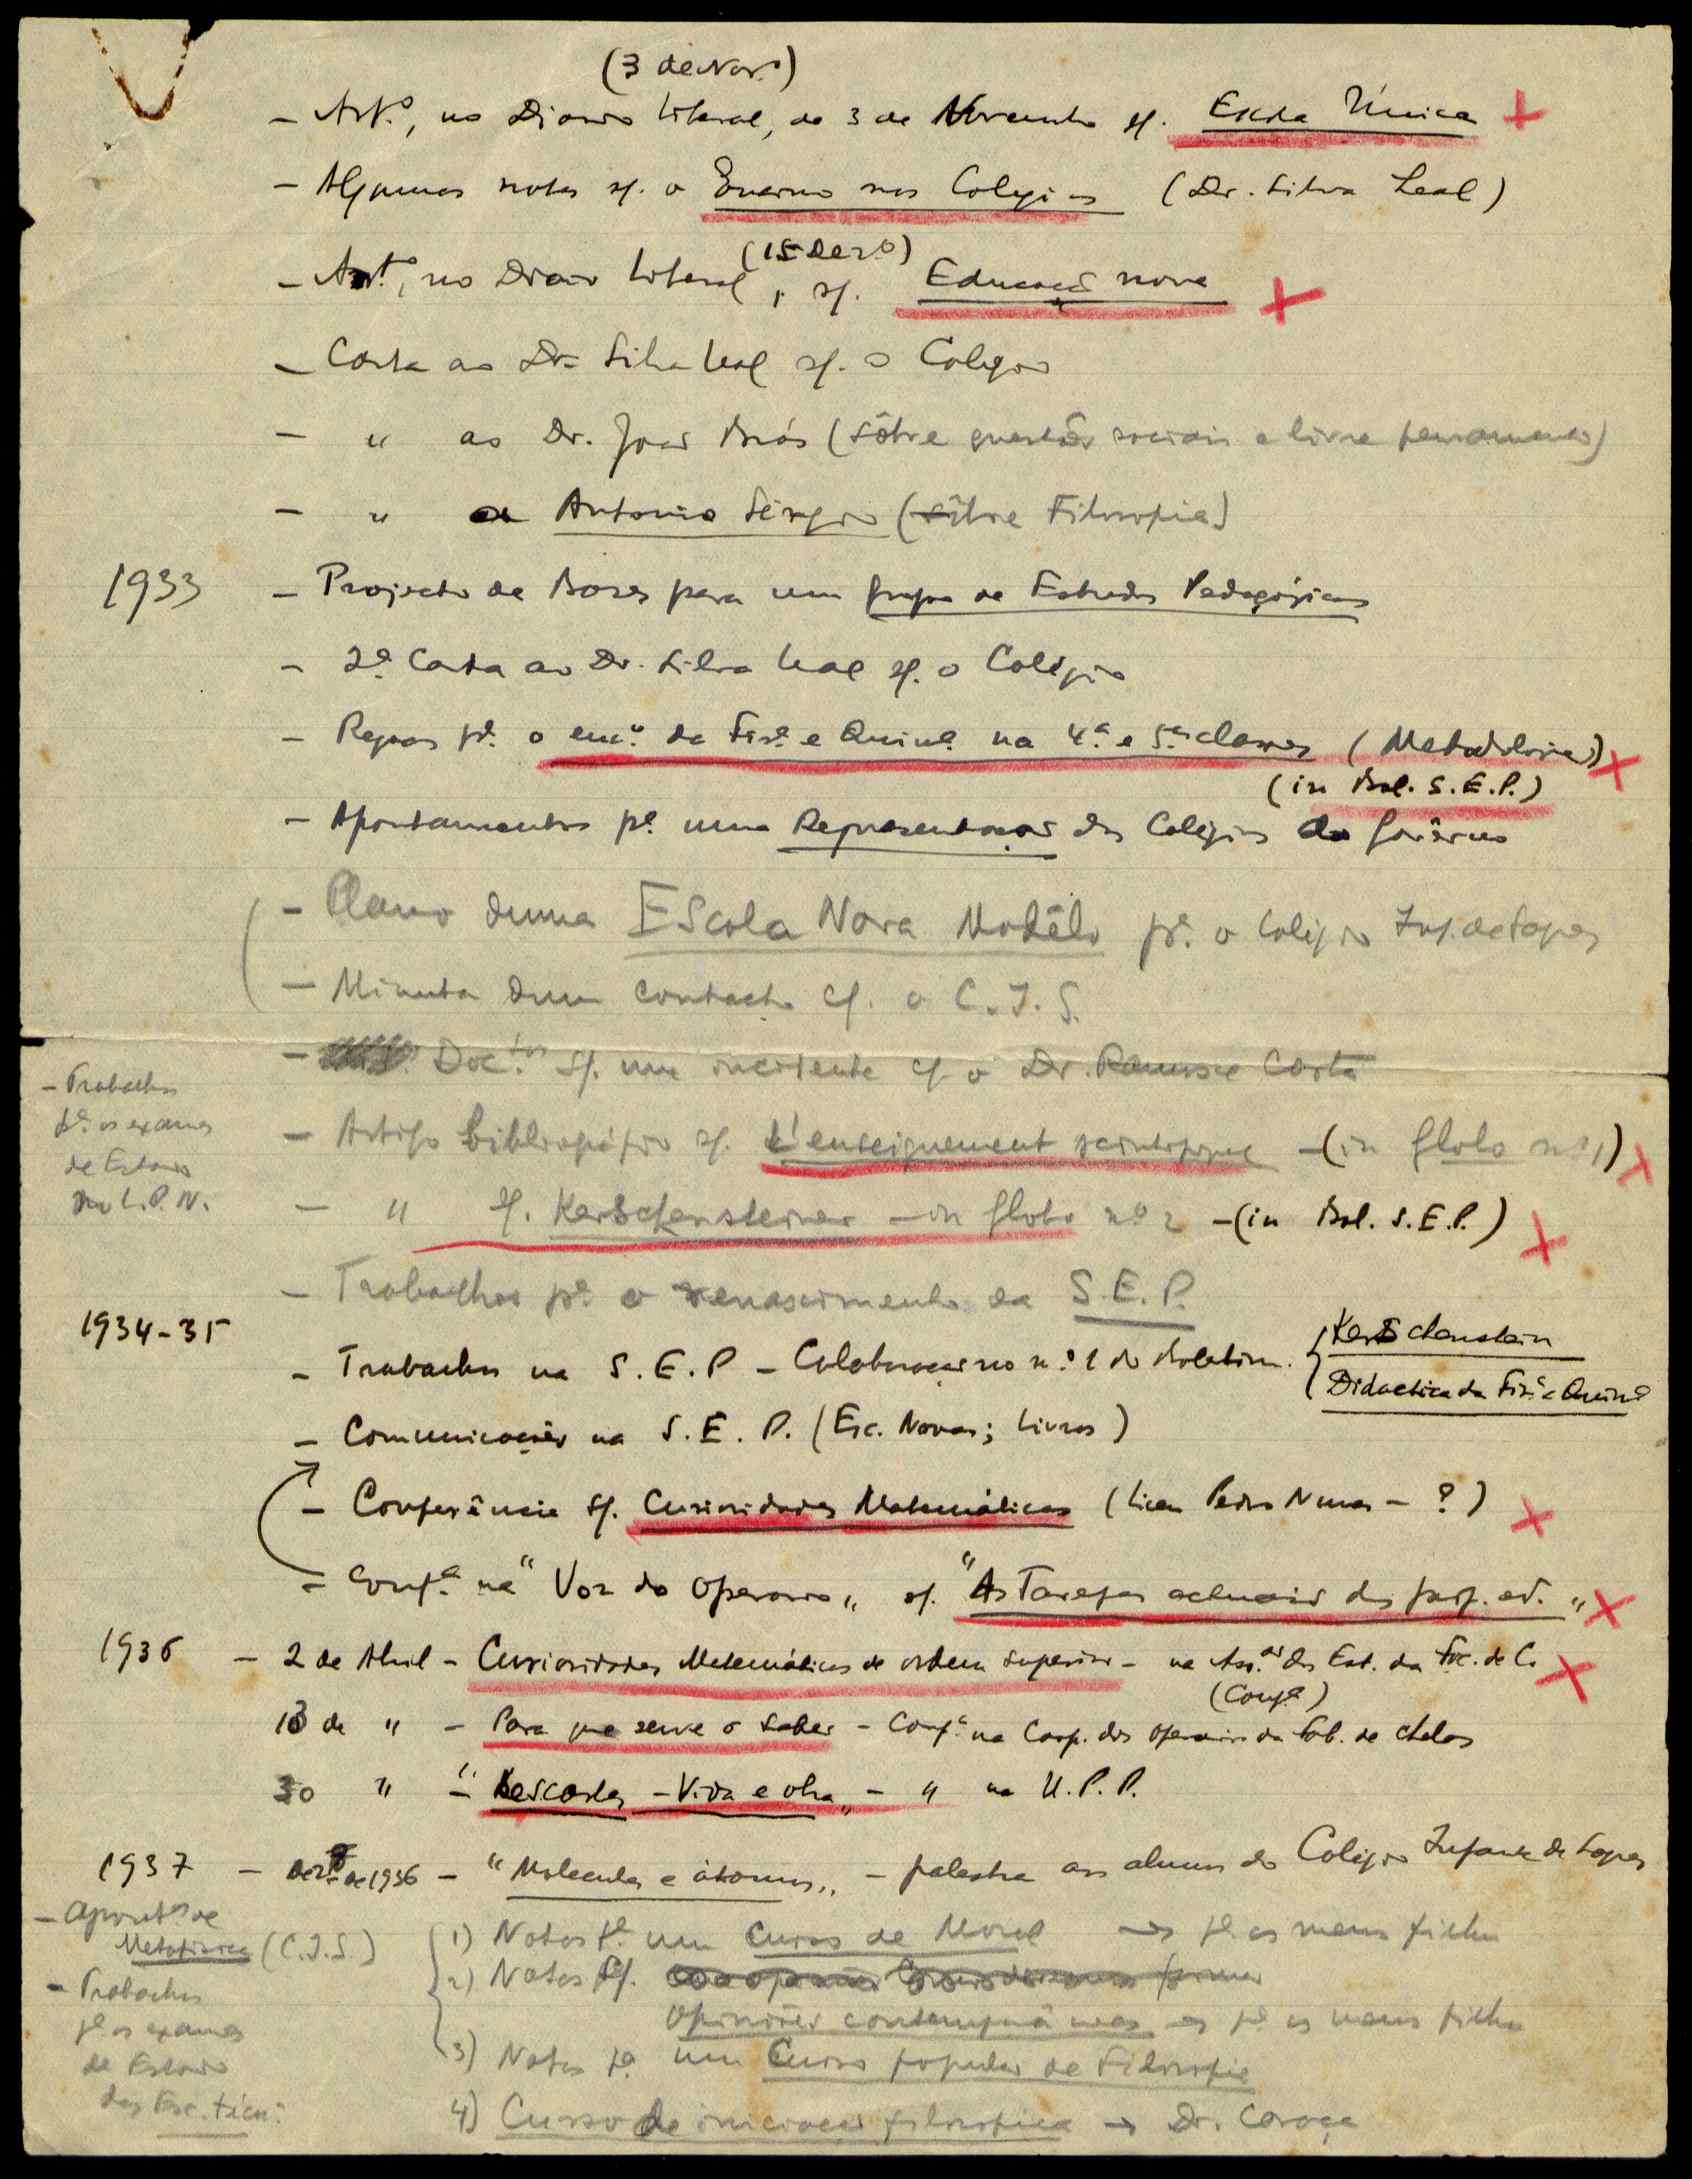 (3 de Nov.º)
- Art.º, no Diario Liberal, de 3 de Novembro sf. Escola Única
- Algumas notas sf. o Ensino nos Colegios (Dr. Silva Leal)
(15 Dez.º)
- Art.º, no Diario Liberal, sf. Educação nova
- Carta ao Dr. Silva Leal sf. o Colegio
- " ao Dr. João Brás (sôbre questões sociais e livre pensamento)
- " a Antonio Sérgio (sôbre Filosofia)
1933 - Projecto de Bases para um grupo de Estudos Pedagógicos
- 2ª Carta ao Dr. Silva Leal sf. o Colégio
- Regras pª. o ens.º da Fisª e Quimª. na 4.ª e 5.as classes (Metodologia)
(in Bol. S.E.P.)
- Apontamentos pª. uma Representação dos Colégios ao Govêrno
- Plano duma Escola Nova Modêlo pª. o Colégio Inf. de Sagres
- Minuta dum contracto cf. o C.I.S.
- Doc.tos sf. um incidente cf o Dr. Costa
- Trabalhos
pª. os exames
de Estado
no L.P.N.
- Artigo bibliográfico sf. L'enseignement scientifique - (in Globo nº 1)
- " sf. Kerschensteiner - in Globo nº 2 - (in Bol. S.E.P.)
- Trabalhos pª. o renascimento da S.E.P.
1934-35
- Trabalhos na S.E.P - Colaboração no n.º 1 do Boletim. { Kerschenstein
Didactica da Fis.ª e Quimª
- Comunicações na S.E.P. (Esc. Novas; Livros)
- Conferência sf. Curiosidades Matemáticas (Liceu Pedro Nunes - ?)
- Conf.ª na "Voz do Operario" sf. "As Tarefas actuais dos prof. ed."
1936 - 2 de Abril - Curiosidades Matemáticas de ordem superior - na Ass.ão dos Est. da Fac. de C.
(Conf.ª)
13 de " - Para que serve o saber - Conf.ª na Coop. dos operarios da Fab. de Chelas
30 " - "Descartes - Vida e obra" - " na U.P.P.
1937 - Dez.º de 1936 - "Moleculas e átomos" - palestra aos alunos do Colegio Infante de Sagres
- Apont.os de
Metafisica (C.I.S.)
- Trabalhos
pª os exames
de Estado
das Esc. técn.
1) Notas pª. um Curso de Moral → pª os meus filhos
2) Notas sf.
Opiniões contemporâneas → pª os meus filhos
3) Notas pª um Curso popular de Filosofia
4) Curso de iniciação filosófica → Dr. Caraça